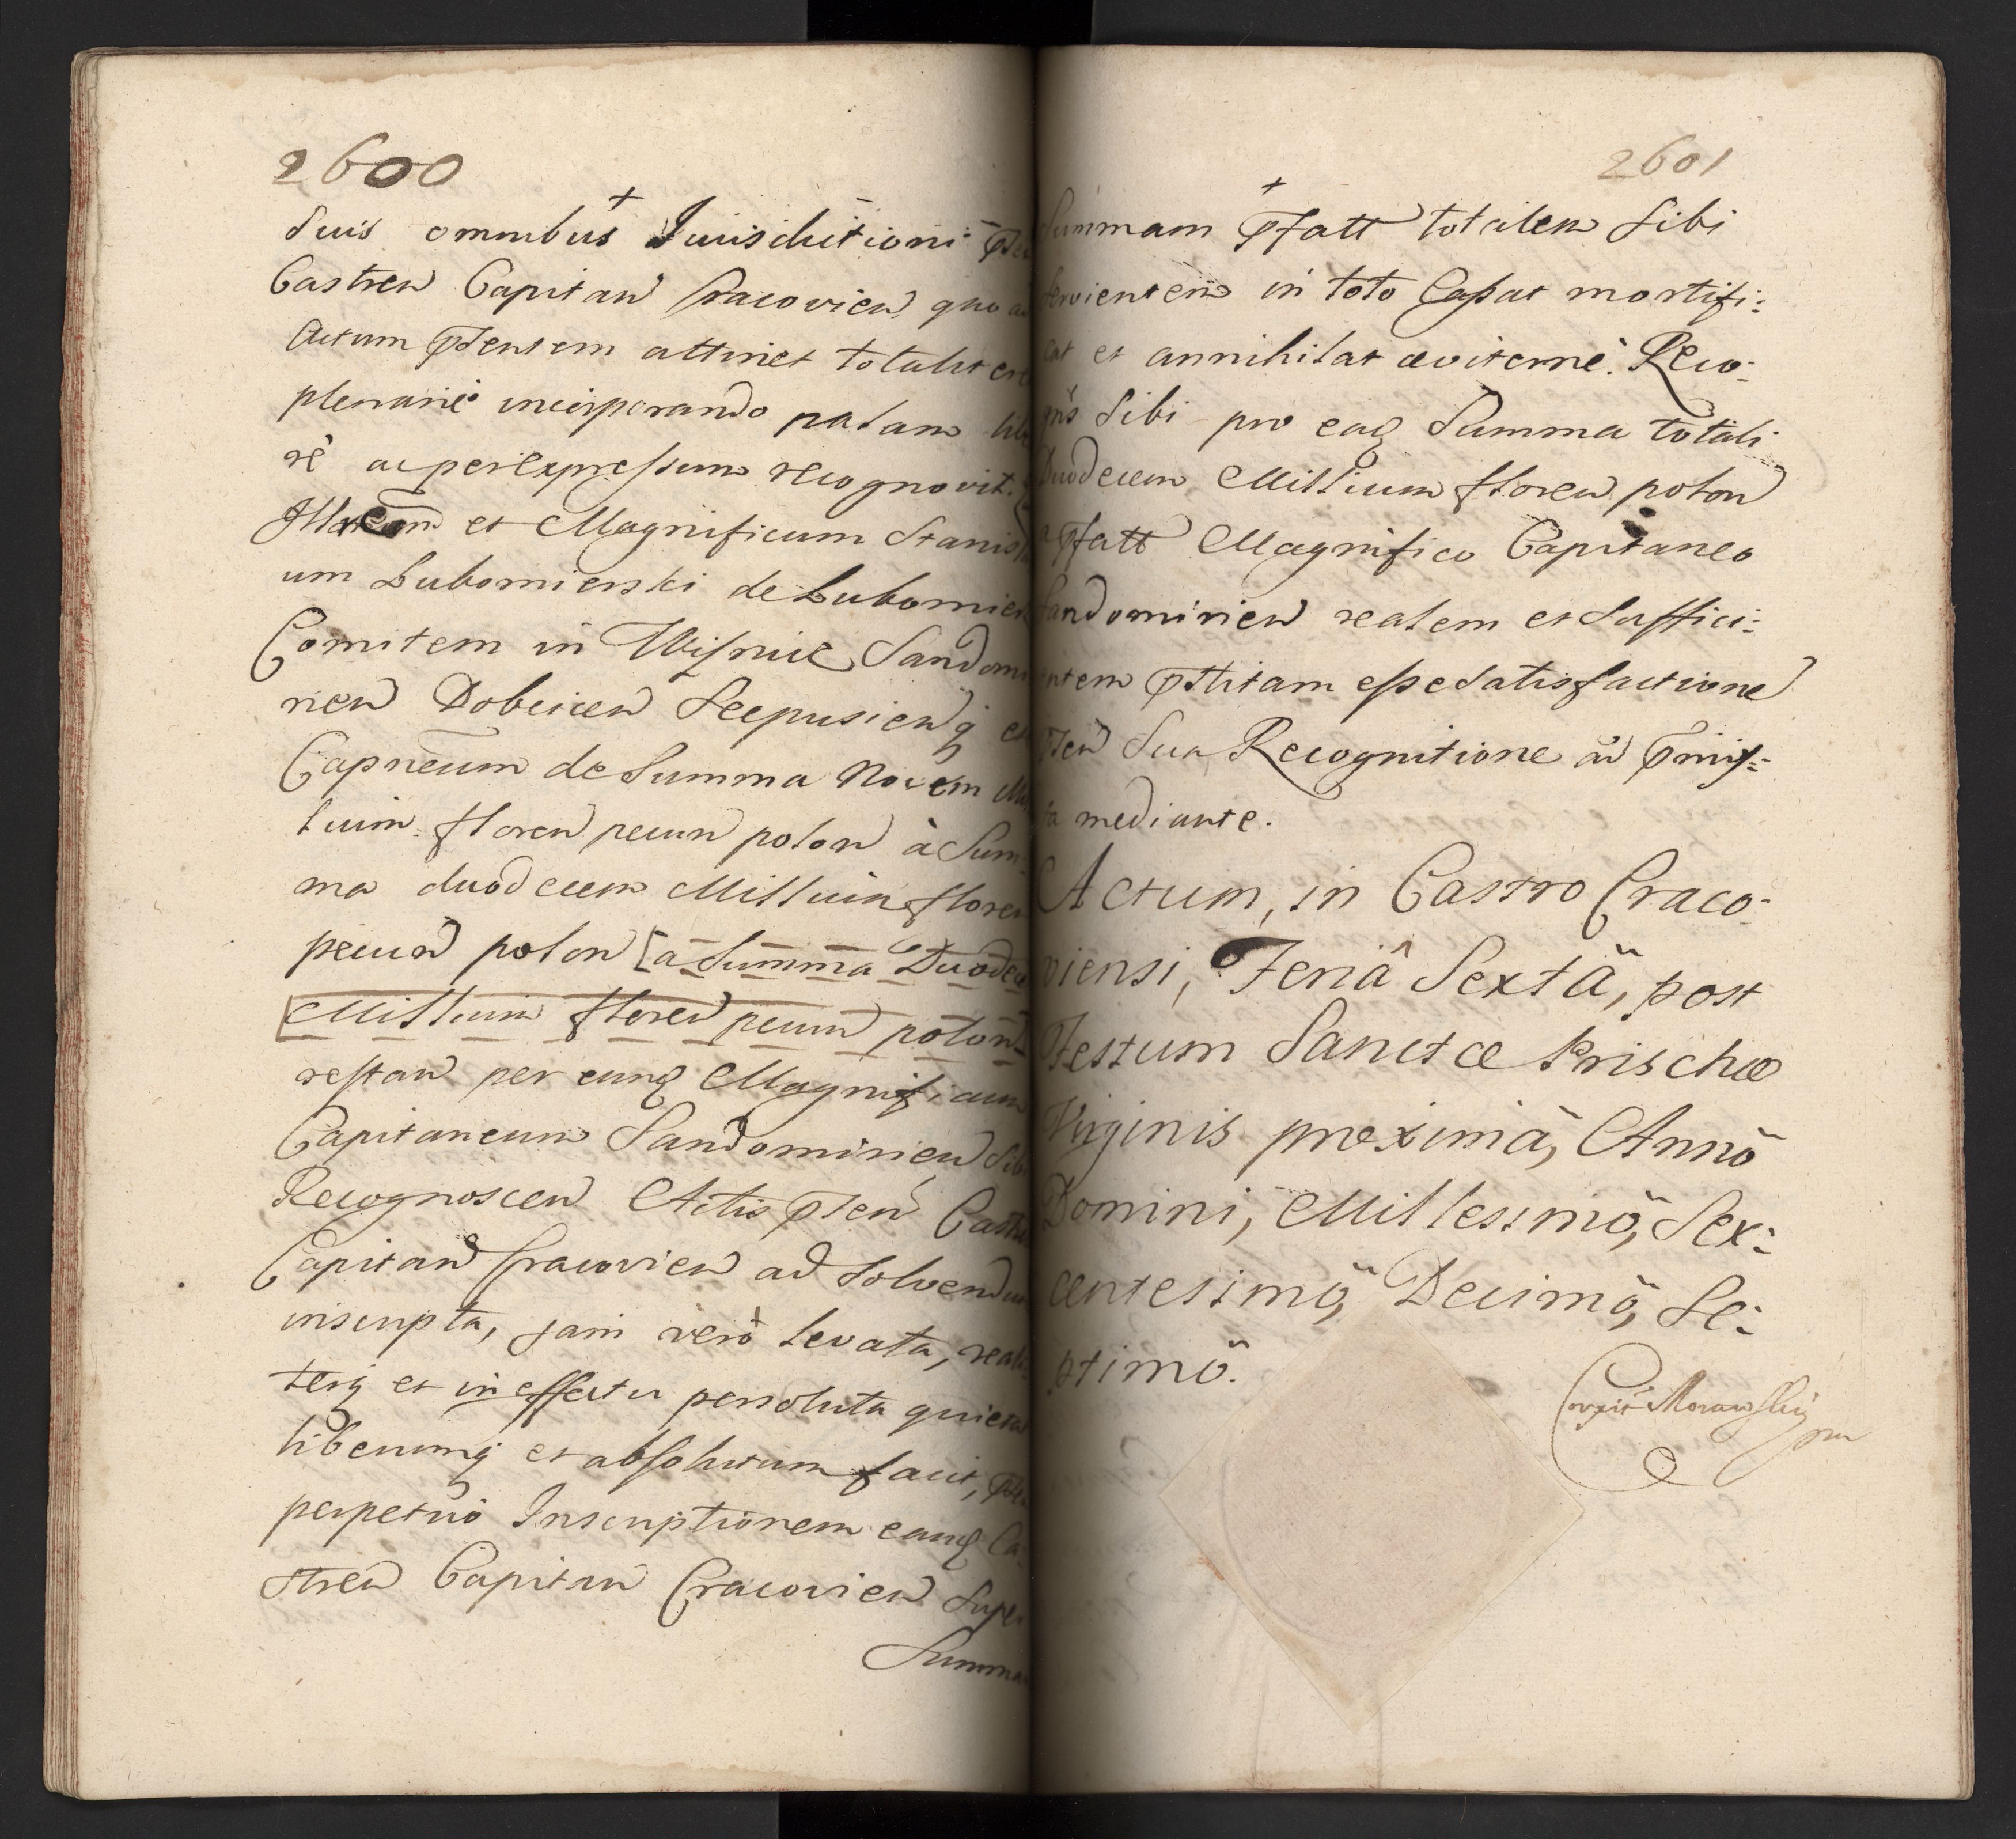 2600
+
suis omnibus Jurisdictioni
Castren Capitan Cracovien quo ad
Actum pntensem attinet totaliter
plenarie incorporando palam libe
re ac per expressum recognovit.
Illrem et Magnificum Stanisla
um Lubomierski de Lubomier
Comitem in Wisnicz Sandomi
rien Dobcicen Scepusienq
Capneum de Summa Novem Mil
lium floren pecun polon à Sum
ma duodecem Millium floren
pecun polon [a Summa Duodec
Millium floren pecun polon]
restan per eundq Magnificum
Capitaneum Sandomirien Sibi
Recognoscen Actis pten Castren
Capitan Cracovien ad Solvendum
inscripta, jam verò levata, reali
terq et in effectu persoluta quietat
liberumq et absolutum facit,
perpetuò Inscriptionem eandq Ca
stren Capitan Cracovien Super
Summam
2601
+
Summam pfatt totalem Sibi
servientem in toto Cassat mortifi:
cat et annihilat æviternè. Reco:
gns Sibi pro eadq Summa totali
Duodecem Millium floren polon
a pfatt Magnifico Capitaneo
Sandomirien realem et Suffici:
entem pstitam esse Satisfactione
pten Sua Recognitione ad pmis:
sa mediante.
Actum, in Castro Craco-
viensi, Feriâ Sextâ, post
Festum Sanctæ Prischæ
Virginis proximâ, Annô
Domini, Millessimô, Sex:
centesimô, Decimô, Se:
ptimô.
Corrxit Morawskij